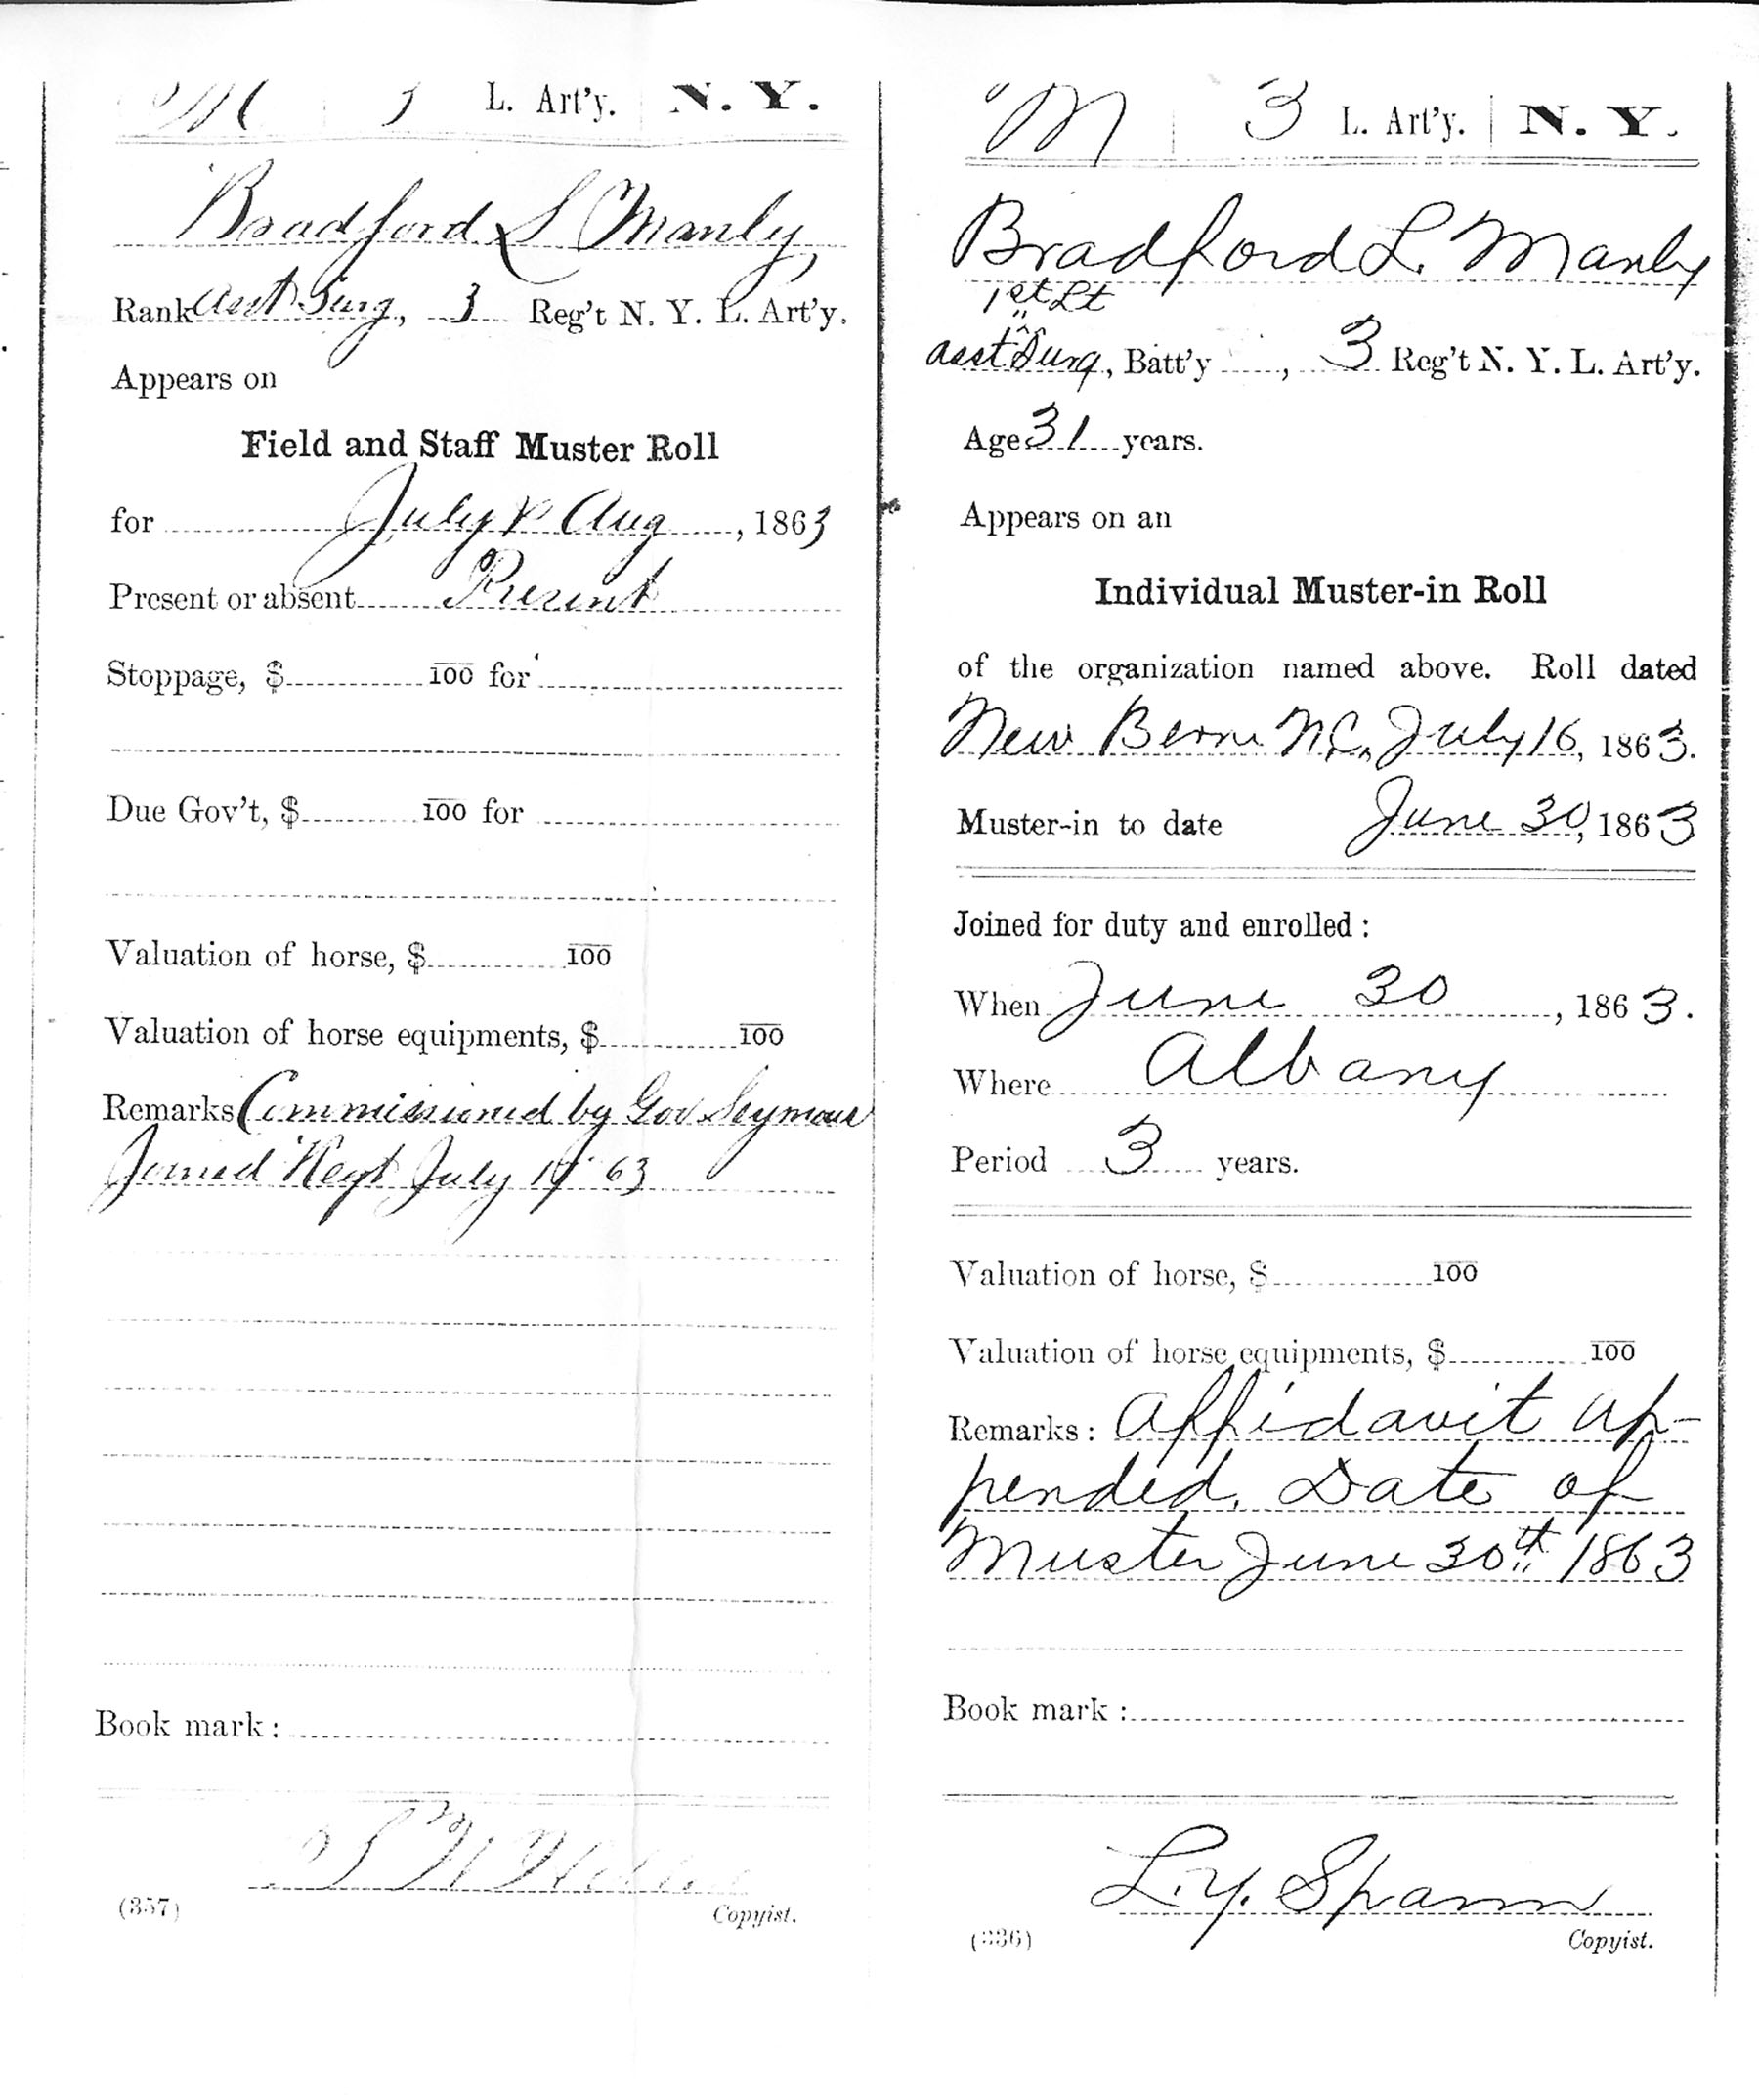 M 3 L. Art'y. N. Y.
Bradford L Manly
Rank Asst Surg, 3 Reg't N. Y. L. Art'y.
Appears on
Field and Staff Muster Roll
for July & Aug, 1863
Present or absent Present
Stoppage, $ 100 for
Due Gov't, $ 100 for
Valuation of horse, $ 100
Valuation of horse equipments, $ 100
Remarks Commissioned by Gov Seymour
Joined Regt July '63
Book mark:
(357)
Copyist.
M 3 L. Art'y. N. Y.
Bradford L. Manly
1st Lt
Asst Surg, Batt'y , 3 Reg't N. Y. L. Art'y.
Age 31 years.
Appears on an
Individual Muster-in Roll
of the organization named above. Roll dated
New Berne N.C., July 16, 1863.
Muster-in to date June 30, 1863
Joined for duty and enrolled:
When June 30, 1863.
Where Albany
Period 3 years.
Valuation of horse, $ 100
Valuation of horse equipments, $ 100
Remarks: Affidavit ap-
pended. Date of
Muster June 30th 1863
Book mark:
L.Y. Spann
(336) Copyist.